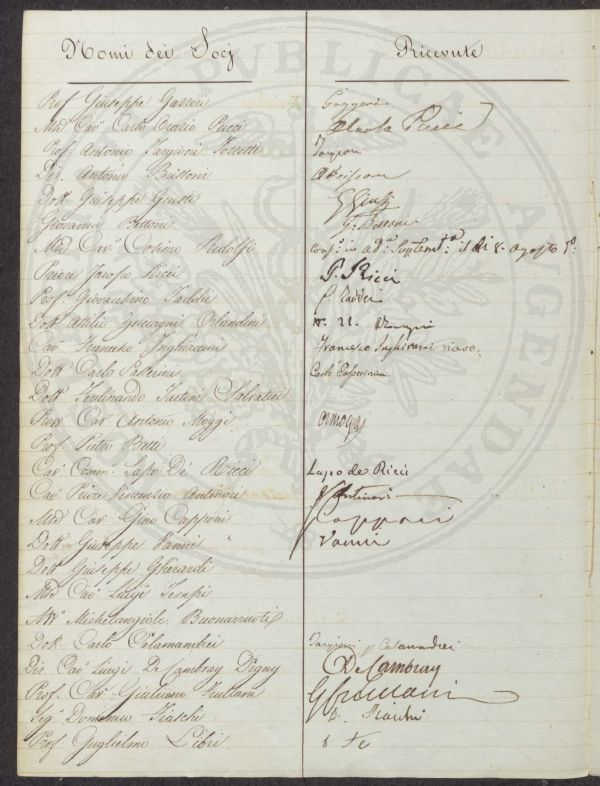 Nomi dei Socj Ricevute
Prof. Giuseppe Gazzeri Gazzeri
Mse Cav. Carlo Pucci Pucci
Prof. Antonio Targioni Tozzetti Targioni
Dir. Antonio Brissoni
Dott. Giuseppe Giusti G Giusti
Giovanni Bettoni
Mse Cav. Cosimo Ridolfi il di 8. Agosto
Priore Ricci P. Ricci
Prof. Giovacchino Taddei G. Taddei
Dott. Attilio Zuccagni Orlandini
Cav. Francesco Inghirami Francesco Inghirami
Dott. Carlo Passerini Carlo Passerini
Dott. Ferdinando Tartini Salvatici
Prov. Cav. Antonio Moggi
Prof. Pietro Betti
Cav. Comm. Lapo De Ricci Lapo de Ricci
Cav. Priore Vincenzio Antinori V Antinori
Mse Cav. Gino Capponi Capponi
Dott. Giuseppe Vanni Vanni
Dott. Giuseppe Gherardi
Mse Cav. Luigi Tempi
Avv. Michelangiolo Buonarruoti
Dott. Carlo Calamandrei Targioni p Calamandrei
Dir. Cav. Luigi De Cambray Digny De Cambray
Prof. Cav. Giuliano Frullani G Frullani
Sig. Domenico Fiaschi D. Fiaschi
Prof. Guglielmo Libri
PUBLICAE
AUGENDAE